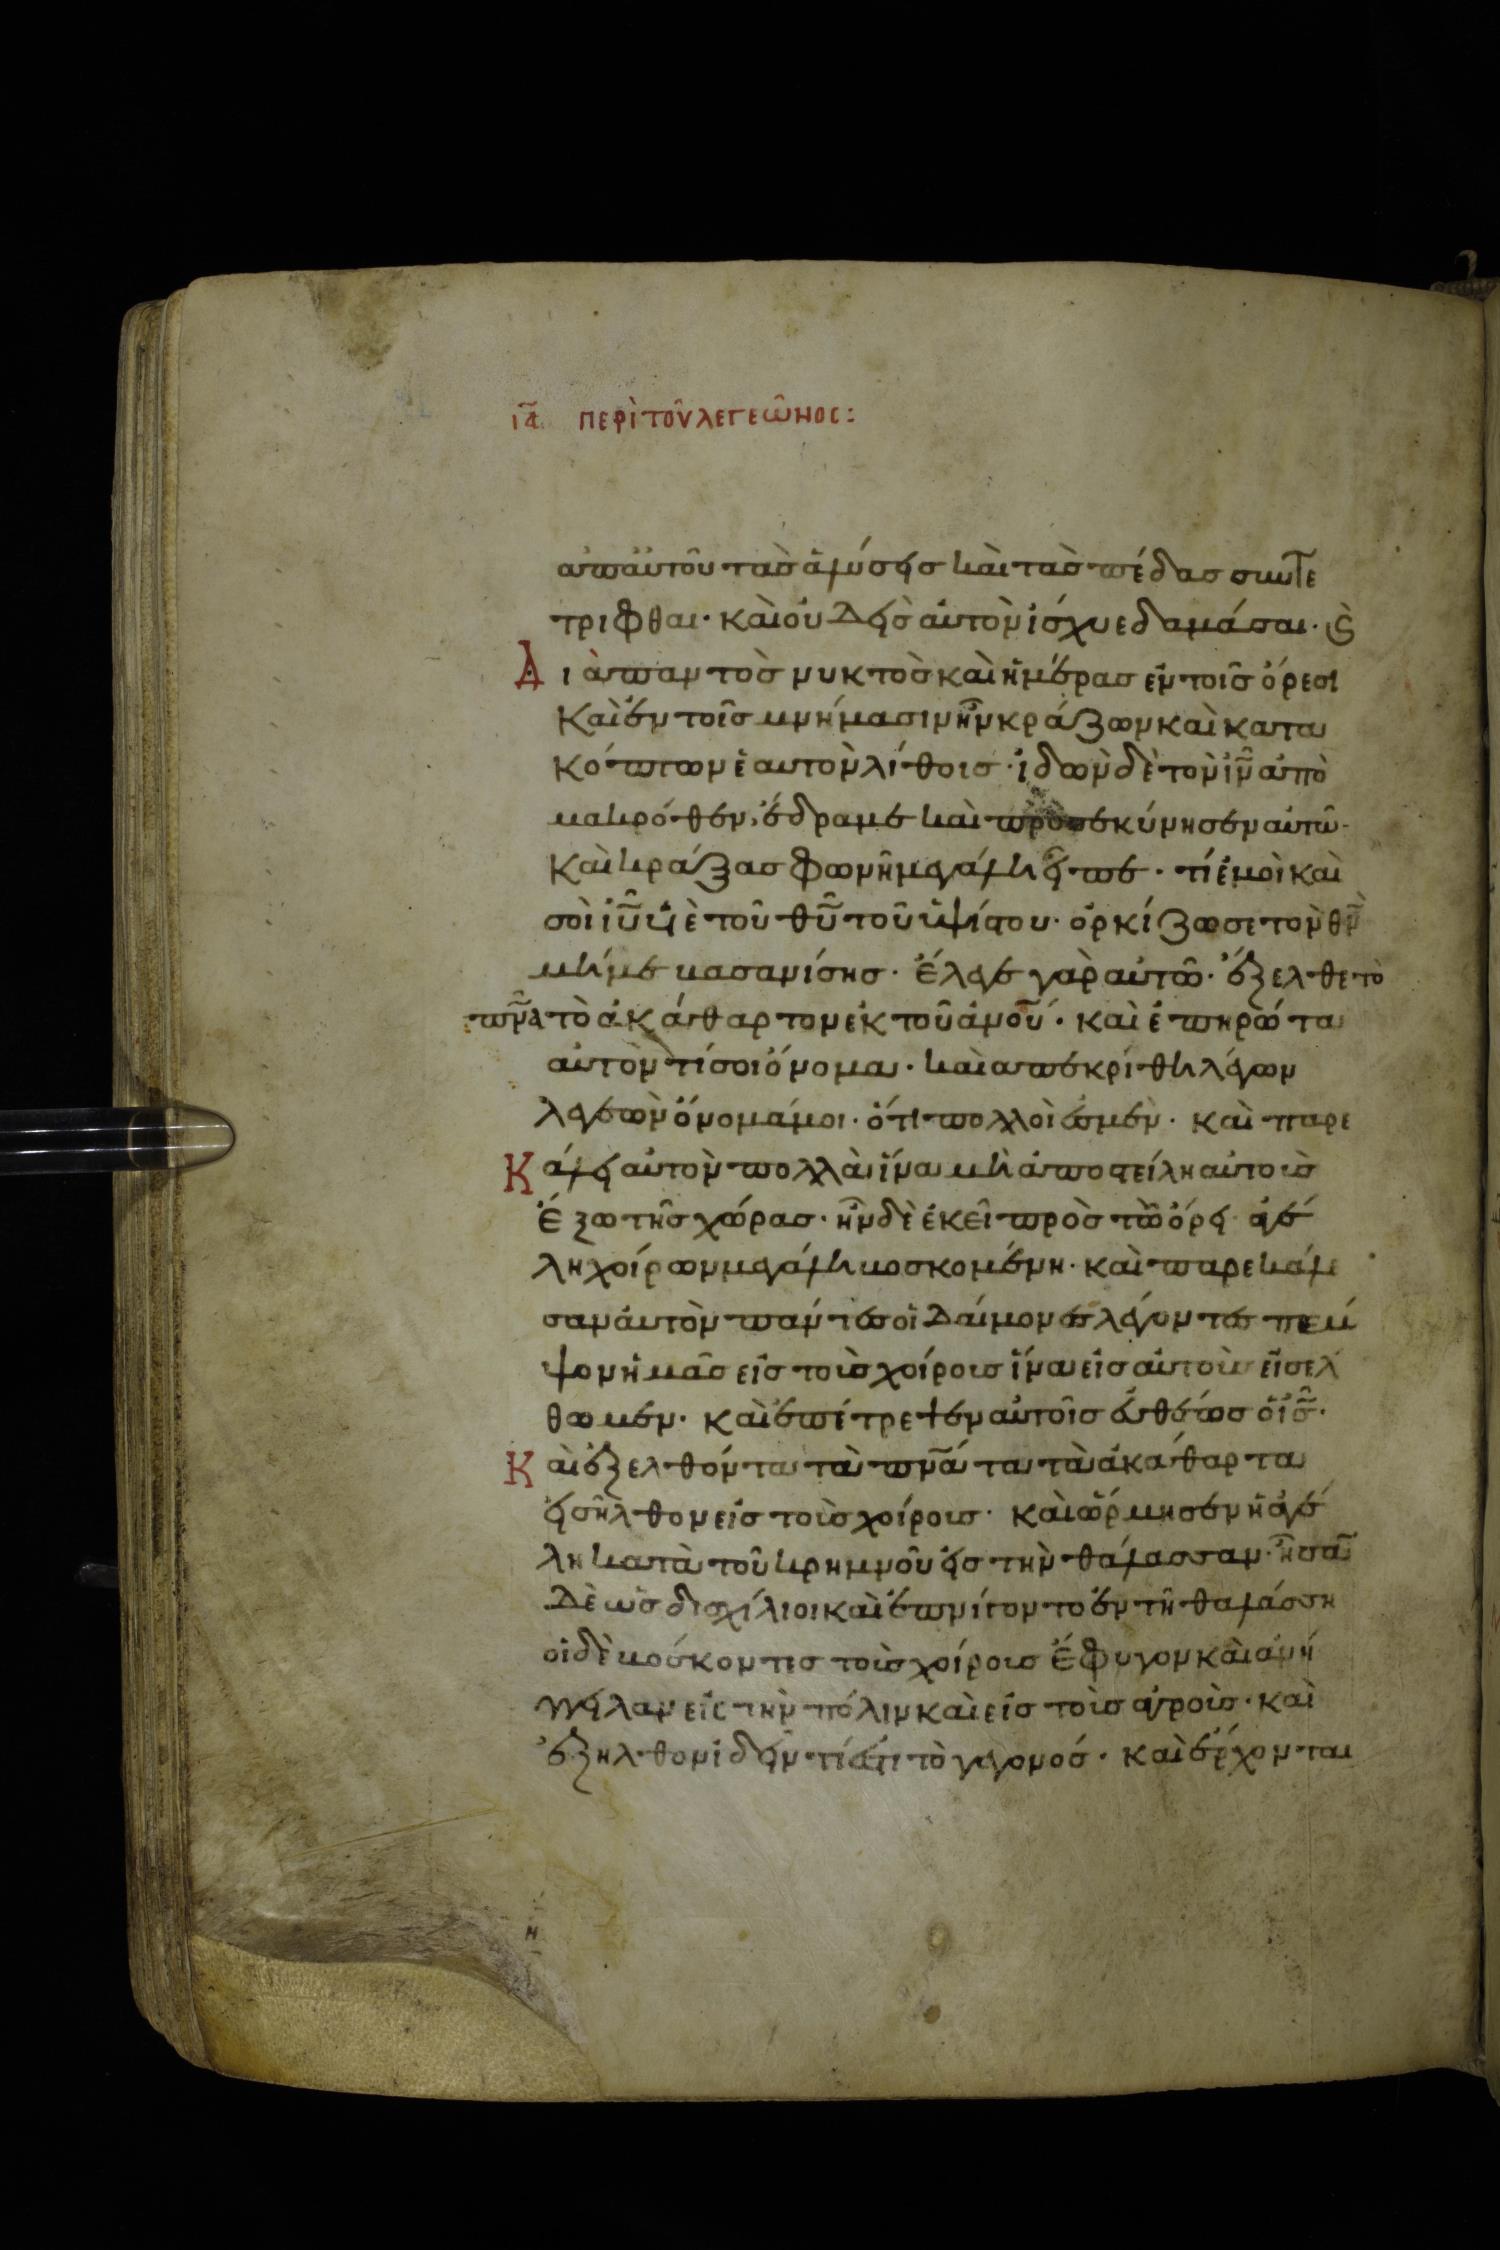 ιᾱ περὶ τοῦ λεγεῶνος:
ἀπ' αὐτοῦ τὰς ἁλύσεις καὶ τὰς πέδας συντε
τρίφθαι· καὶ οὐδεὶς αὐτὸν ἴσχυε δαμάσαι· ϛ
Διὰ παντὸς νυκτὸς καὶ ἡμέρας ἐν τοῖς ὄρεσι
καὶ ἐν τοῖς μνήμασιν ἦν κράζων καὶ κατα
κόπτων ἑαυτὸν λίθοις· ἰδὼν δὲ τὸν ιν̄ ἀπὸ
μακρόθεν, ἔδραμε καὶ προσεκύνησεν αὐτῶ·
καὶ κράξας φωνῆ μεγάλη εἶπε· τί ἐμοὶ καὶ
σοὶ ιῡ υἱὲ τοῦ θῡ τοῦ ὑψίστου· ὁρκίζω σε τὸν θν̄
μή με βασανίσης· ἔλεγε γὰρ αὐτῶ· ἔξελθε τὸ
πν̄α τὸ ἀκάθαρτον ἐκ τοῦ ἀνοῦ· καὶ ἐπηρώτα
αὐτὸν τί σοι ὄνομα· καὶ ἀπεκρίθη λέγων
λεγεὼν ὄνομά μοι· ὅτι πολλοί ἐσμέν· καὶ παρε
Κάλει αὐτὸν πολλὰ ἵνα μὴ ἀποστείλη αὐτοὺς
ἔξω τῆς χώρας· ἦν δὲ ἐκεῖ πρὸς τῶ ὄρει ἀγέ
λη χοίρων μεγάλη βοσκομένη· καὶ παρεκάλε
σαν αὐτὸν πάντες οἱ δαίμονες λέγοντες πέμ
ψον ἡμᾶς εἰς τοὺς χοίρους ἵνα εἰς αὐτοὺς εἰσέλ
θωμεν· καὶ ἐπέτρεψεν αὐτοῖς εὐθέως ὁ ις̄·
Καὶ ἐξελθόντα τὰ πν̄άτα τὰ ἀκάθαρτα
εἰσῆλθον εἰς τοὺς χοίρους· καὶ ὥρμησεν ἡ ἀγέ
λη κατὰ τοῦ κρημνοῦ εἰς τὴν θάλασσαν· ἦσαν
δὲ ὡς δισχίλιοι καὶ ἐπνίγοντο ἐν τῆ θαλάσση
οἱ δὲ βόσκοντες τοὺς χοίρους ἔφυγον καὶ ἀνή
γγειλαν εἰς τὴν πόλιν καὶ εἰς τοὺς ἀγρούς· καὶ
ἐξῆλθον ἰδεῖν τί ἐστι τὸ γεγονός· καὶ ἔρχονται